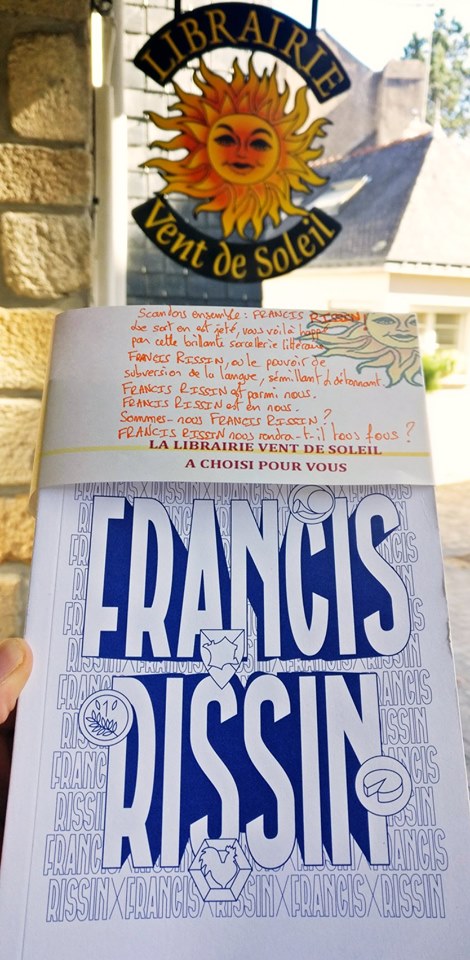 LIBRAIRIE
Vent de Soleil
Scandons ensemble : FRANCIS RISSIN !
Le sort en est jeté, vous voilà happé
par cette brillante sorcellerie littéraire
FRANCIS RISSIN, ou le pouvoir de
subversion de la langue, sémillant & détonnant.
FRANCIS RISSIN est parmi nous.
FRANCIS RISSIN est en nous.
Sommes-nous FRANCIS RISSIN ?
FRANCIS RISSIN nous rendra-t-il tous fous ?
LA LIBRAIRIE VENT DE SOLEIL
A CHOISI POUR VOUS
FRANCIS
RISSIN
RISSIN FRANCIS RISSIN FRANCIS RISSIN